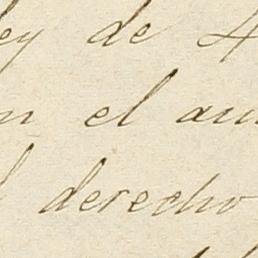 ey de 4
n el au
l derecho